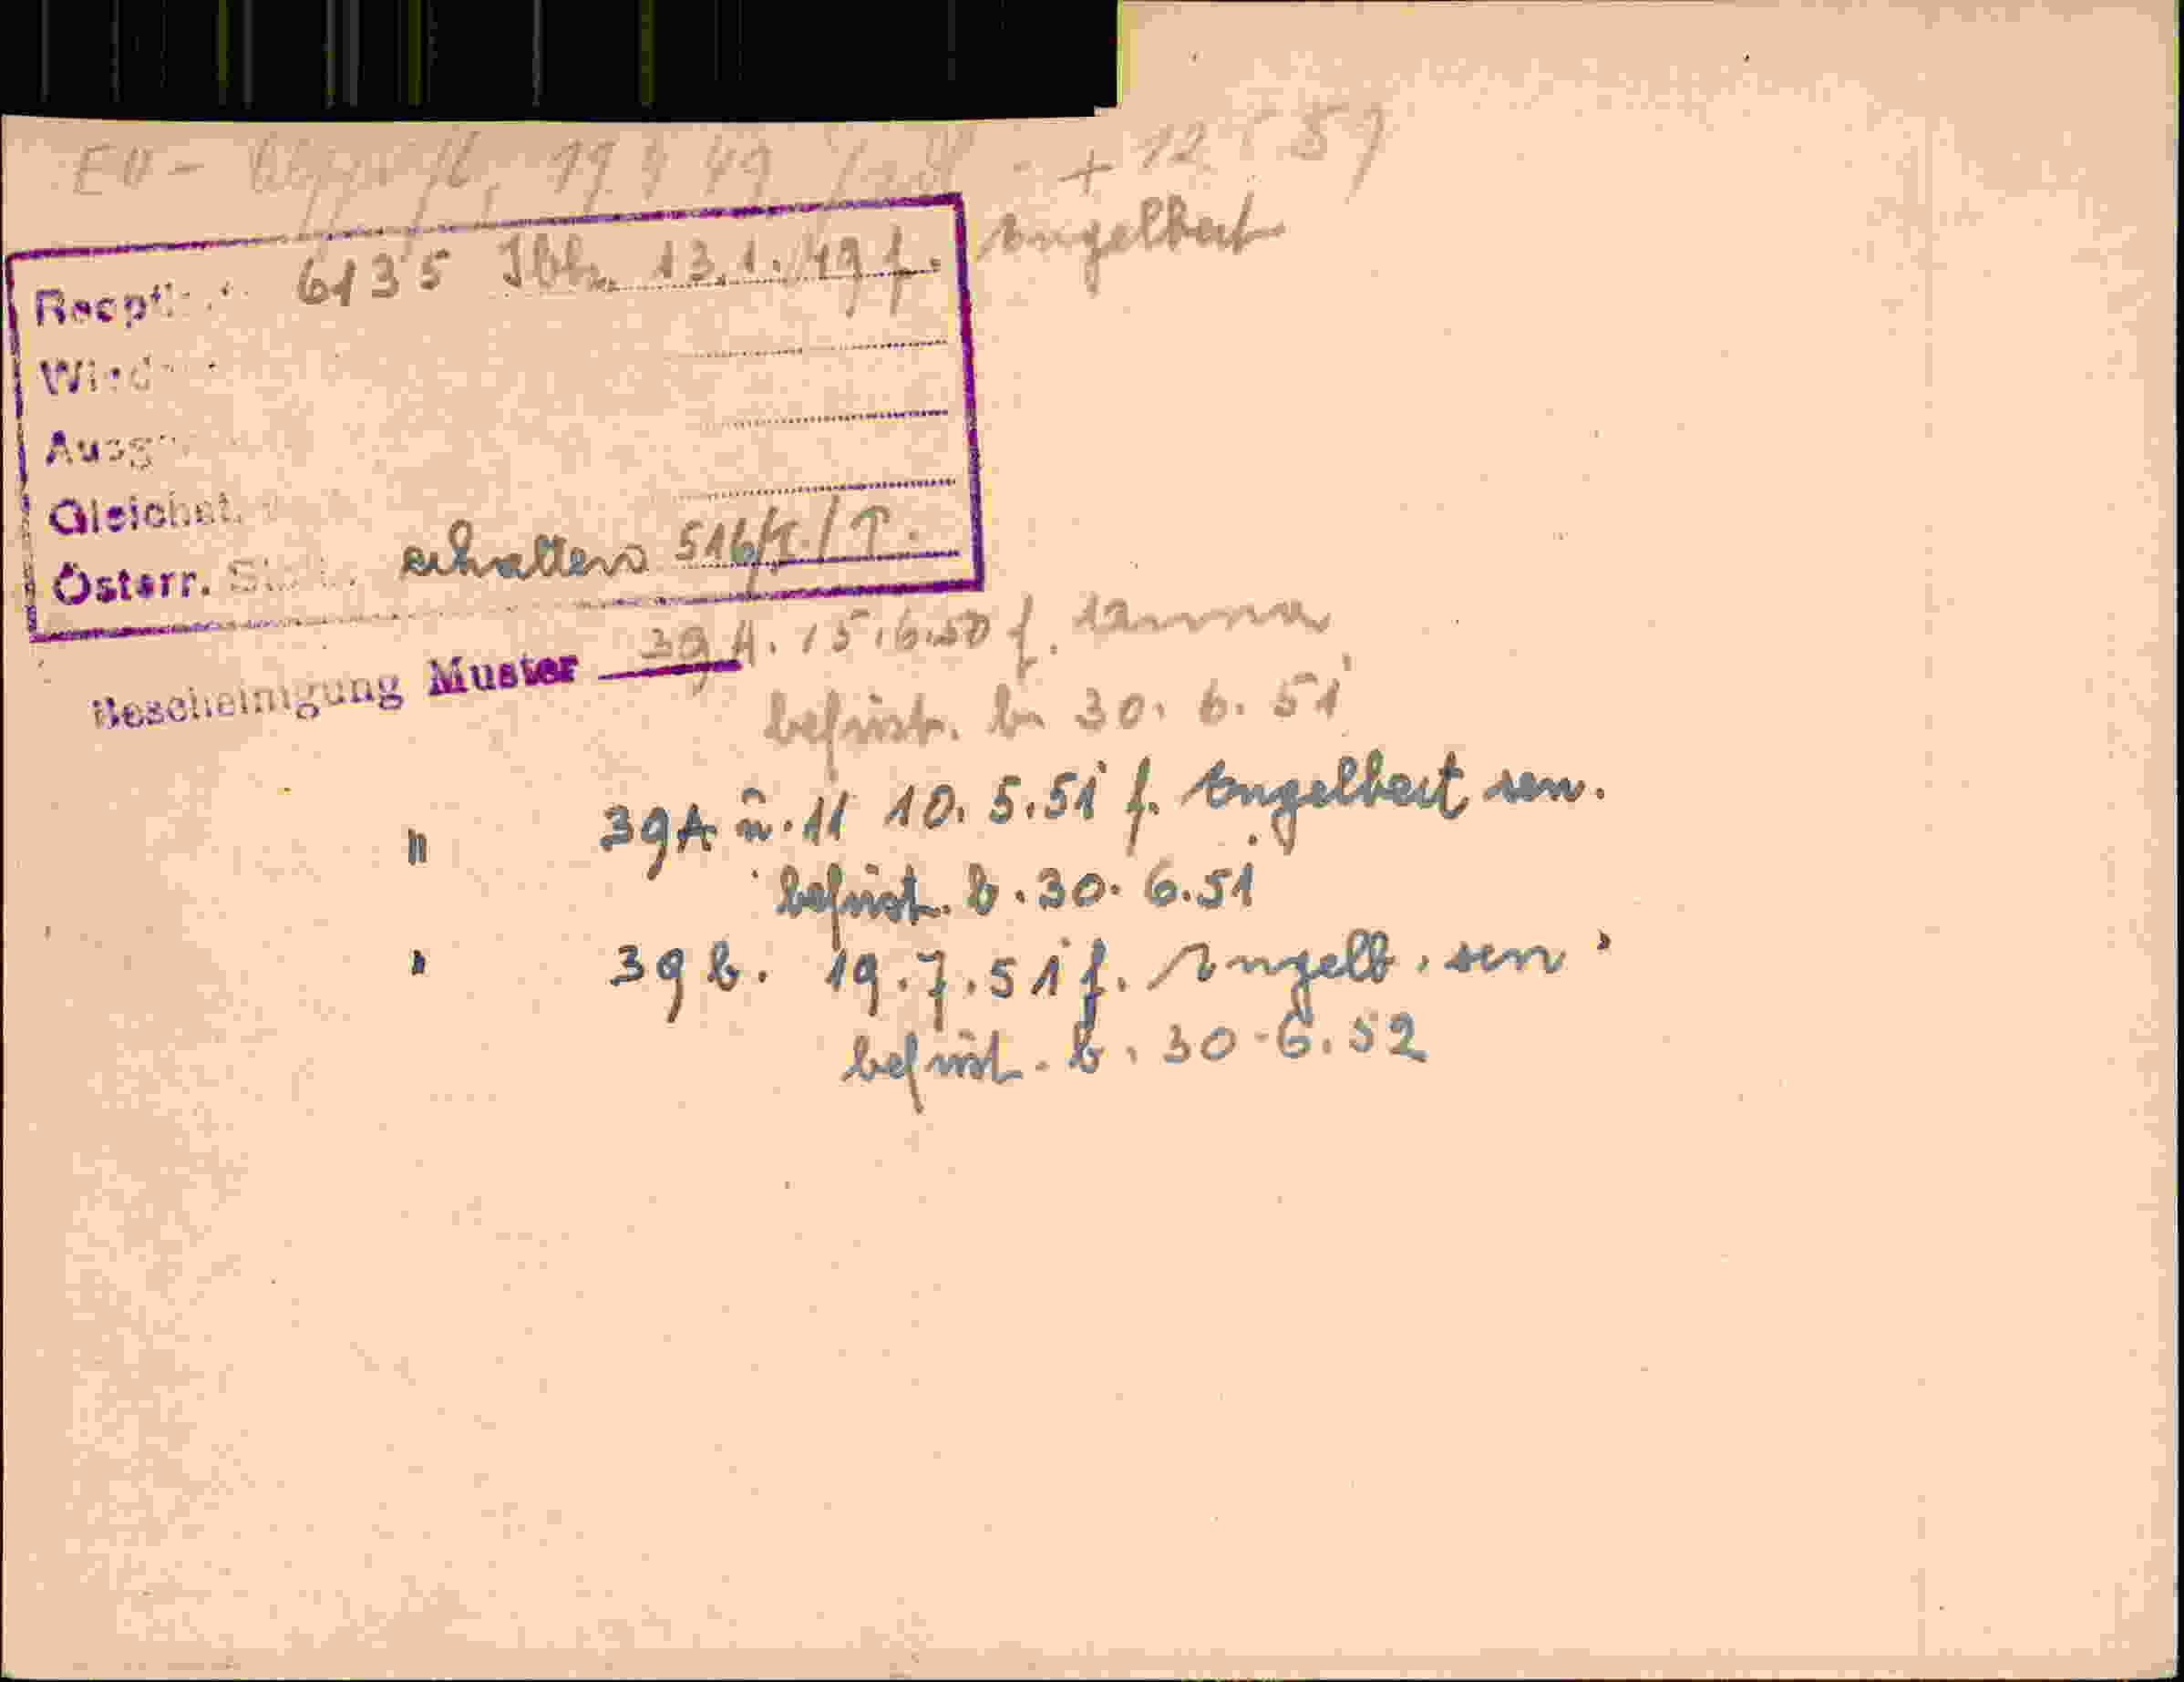 EU - 19 9 49 + 12 5 59
6135 Ibk. 13.1.49 f. Engelbert
Österr. erhalten 516/I/T.
Bescheinigung Muster 39 A. 15.6.50 f. Anna
befrist. b. 30. 6. 51
" 39A u. 11 10. 5. 51 f. Engelbert sen.
befrist. b. 30. 6. 51
" 39 b. 19. 7. 51 f. Engelb. sen.
befrist. b. 30. 6. 52